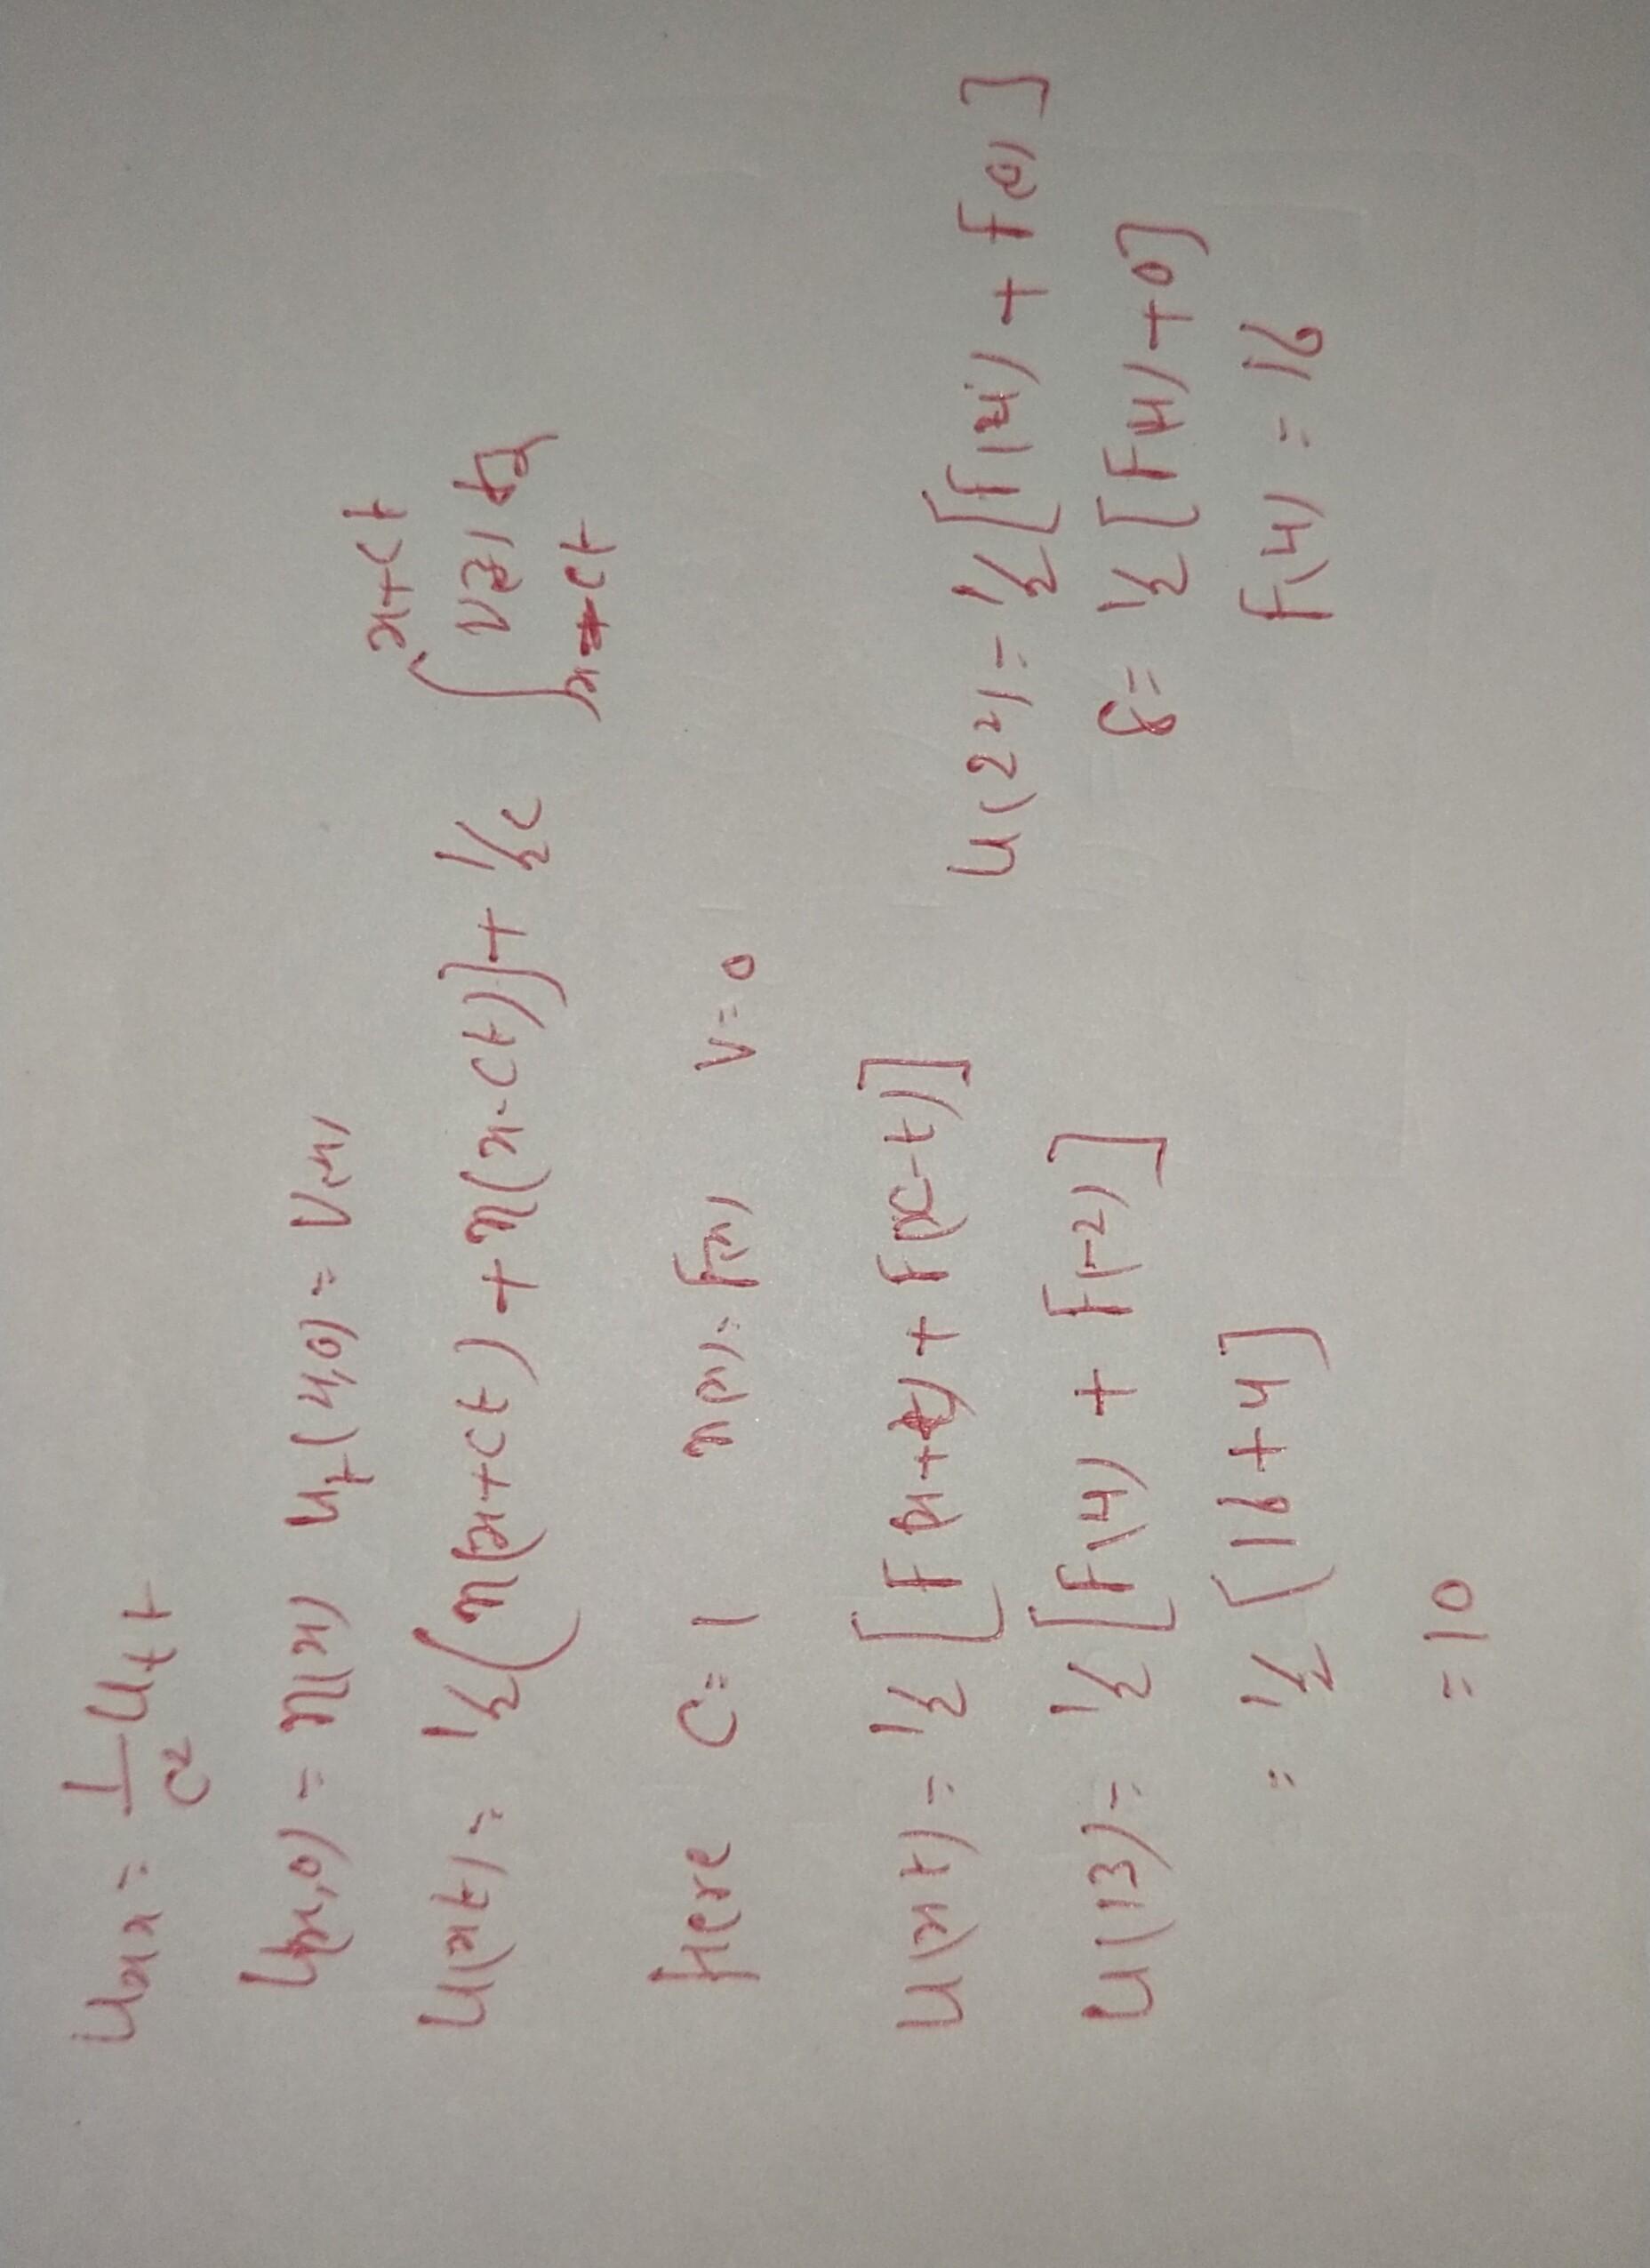 uxx = 1/c² utt
u(x,0) = η(x) ut(x,0) = V(x)
u(xt) = 1/2(η(x+ct) + η(x-ct)] + 1/2c ∫_{x-ct}^{x+ct} V(z) dz
Here C = 1 η(x) = f(x) V = 0
u(x t) = 1/2 [f(x+t) + f(x-t)]
u(13) = 1/2 [f(4) + f(-2)]
= 1/2 [16+4]
= 10
u(22) = 1/2 [f(4) + f(0)]
8 = 1/2 [f(4) + 0]
f(4) = 16